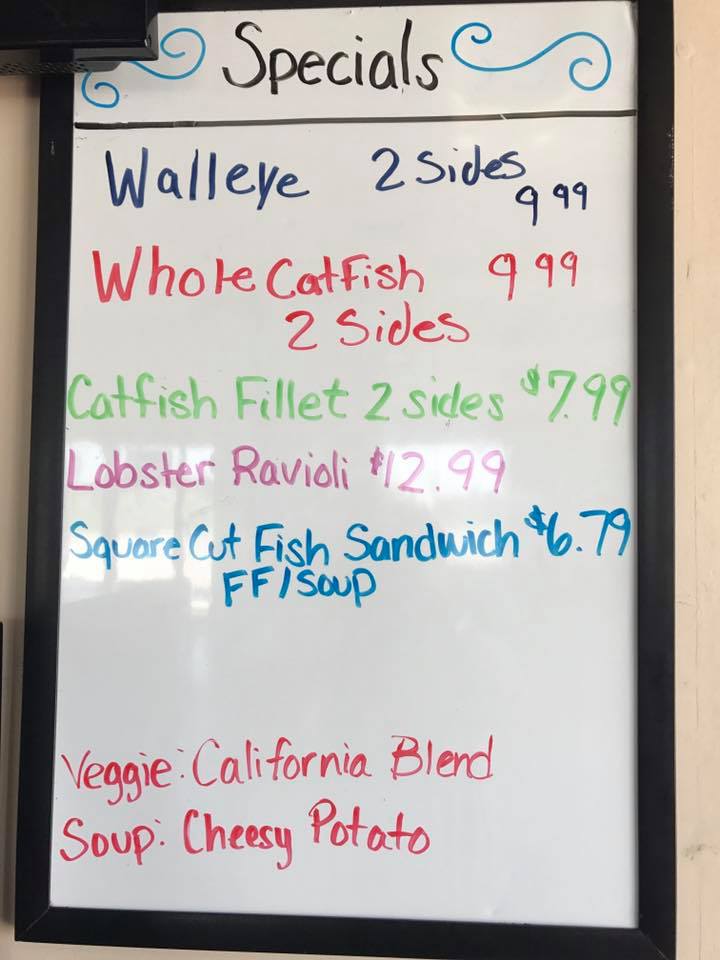 Specials
Walleye 2 Sides
9 99
Whole Catfish 9 99
2 Sides
Catfish Fillet 2 sides $7.99
Lobster Ravioli $12.99
Square Cut Fish Sandwich $6.79
FF/Soup
Veggie: California Blend
Soup: Cheesy Potato